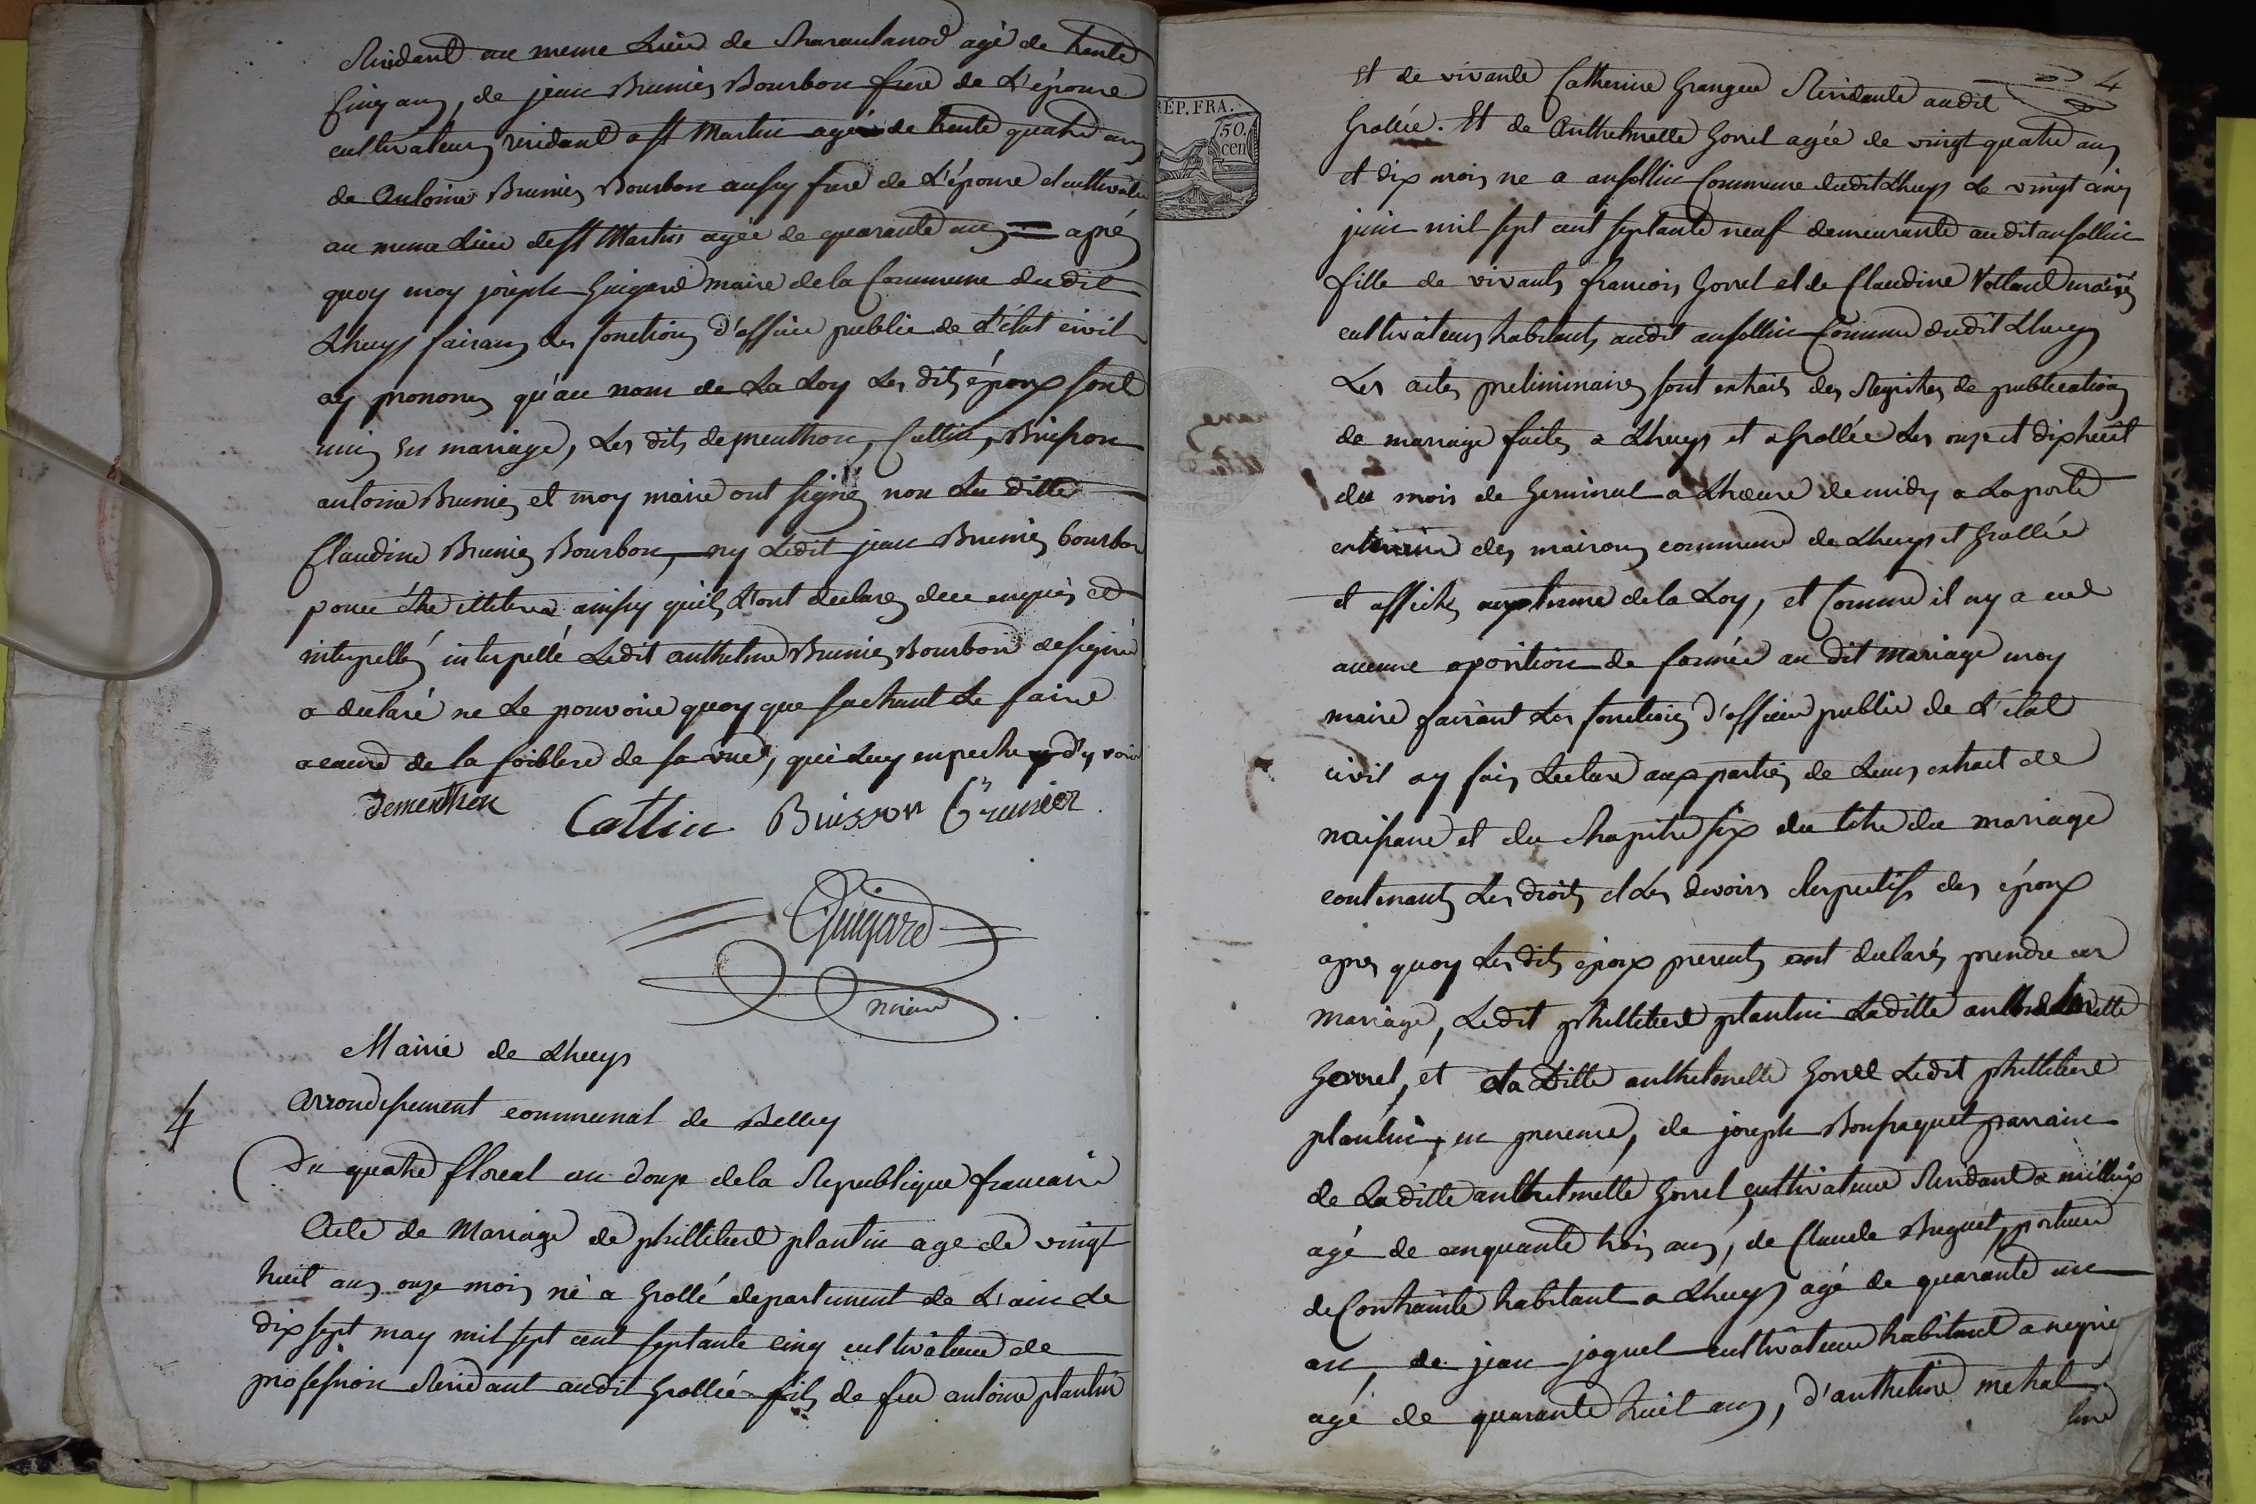 Résidant au meme Lieu de agé de trente
Cinq ans, de jean Brunier Bourbon frere de L'épouse
cultivateur residant a St Martin agé de trente quatre ans
de Antoine Brunier Bourbon aussy frere de L'épouse et cultivateur
au meme Lieu de St Martin agée de quarante ans = après
quoy moy joseph Guigard maire de la Commune du dit
Lhuys faisant les fonctions d'officier public de L'état civil
ay prononcé qu'au nom de La Loy Les dits époux sont
unis en mariage, Les dits dementhon, Cattin, Buisson
antoine Brunier et moy maire ont signés non La ditte
Claudine Brunier Bourbon, ny Ledit jean Brunier bourbon
pour être illiterés ainsy quils L'ont declarés de ce enquis et
interpellés interpellé Ledit anthelme Brunier Bourbon de signé
a declaré ne Le pouvoir quoy que sachant Le faire
a cause de la foiblesse de sa vue, qui Luy empeche d'y voir
dementhon Cattin Buisson Brunier
Guigard
maire
Mairie de Lhuys
4
Arrondissement communal de Belley
Du quatre floreal an douze de la Republique francaise
Acte de Mariage de phillibert plantin age de vingt
huit ans onze mois né a Grollé departement de L'ain Le
dix sept may mil sept cent septante cinq cultivateur de
profession Residant audit Grollée fils de feu antoine plantin
4
RÉP. FRA.
50.
cen
et de vivante Catherine Grangeu Residante audit
Grollée. Et de Anthelmette Gorrel agée de vingt quatre ans
et dix mois ne a ansollin Commune dudit Lhuys Le vingt cinq
juin mil sept cent septante neuf demeurante audit ansollin
fille de vivants francois Gorrel et de Claudine Vettard mariés
cultivateurs habitants audit ansollin Commune dudit Lhuys
Les actes preliminaires sont extraits des Registres de publications
de mariage faites a Lhuys et a Grollée Les onze et dix huit
du mois de Germinal a Lheure de midy a La porte
exterieure des maisons commune de Lhuys et Grollée
et affiches aux terme de la Loy, et Comme il ny a eue
aucune oposition de formée au dit mariage moy
maire faisant Les fonctions d'officier public de L'etat
civil ay fais Lecture aux parties de Leurs extrait de
naissance et du Chapitre six du titre du mariage
contenants Les droits et Les devoirs Respectifs des époux
apres quoy Les dits époux presents ont declarés prendre en
mariage, Ledit phillibert plantin La ditte anthelmette
Gorrel, et La Ditte anthelmette Gorrel Ledit phillibert
plantin, en presence, de joseph Bonfraquet parrain
de La ditte anthelmette Gorrel cultivateur Residant a millieux
agé de cinquante trois ans, de Claude Buguet, porteur
de Contrainte habitant a Lhuys agé de quarante un
an, de jean joguet cultivateur habitant a
agé de quarante huit ans, d'anthelme metral